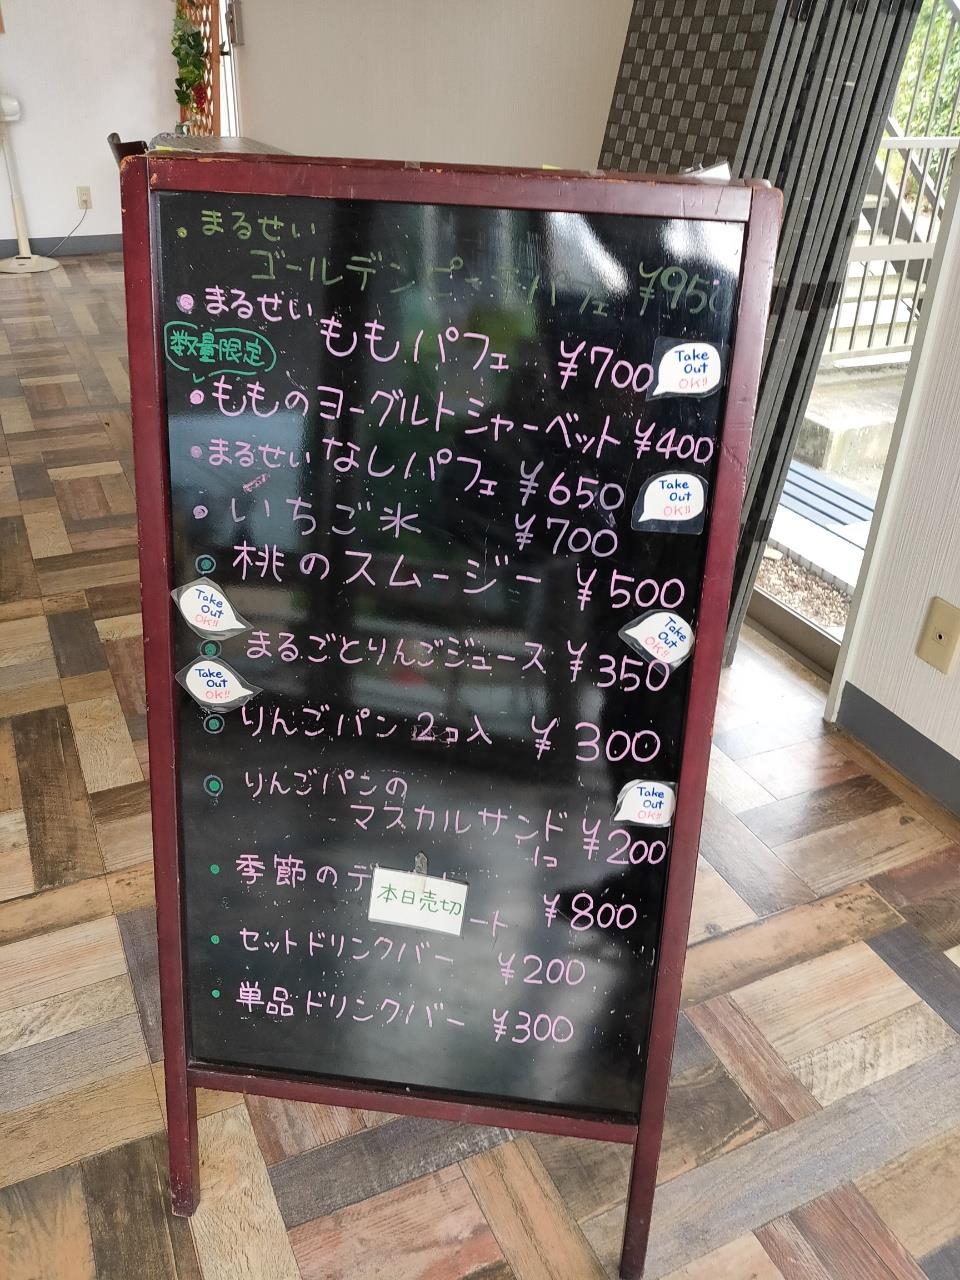 ・まるせい
ゴールデンピーチパフェ ¥950
・まるせい
ももパフェ ¥700
Take Out OK!!
数量限定
・もものヨーグルトシャーベット ¥400
・まるせいなしパフェ ¥650
Take Out OK!!
・いちご氷 ¥700
・桃のスムージー ¥500
Take Out OK!!
Take Out OK!!
・まるごとりんごジュース ¥350
Take Out OK!!
・りんごパン 2コ入 ¥300
・りんごパンの
マスカルサンド 1コ ¥200
Take Out OK!!
・季節のデ
ート ¥800
本日売切
・セットドリンクバー ¥200
・単品ドリンクバー ¥300